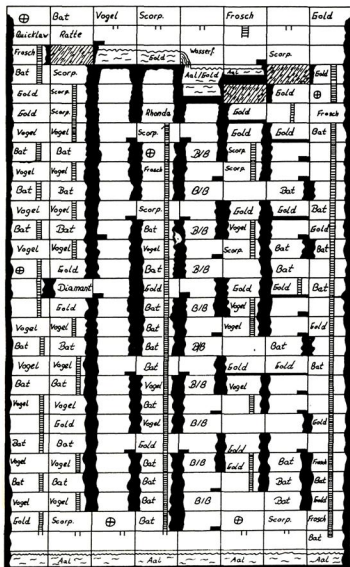 ⊕ Bat Vogel Scorp. Frosch Gold
Quicklaw Ratte
Frosch Gold Wasserf. Scorp.
Bat Scorp. Aal/Gold Aal Gold
Gold Scorp. Gold ⊕
Gold Scorp. Rhonda Gold Frosch
Vogel Vogel Scorp. Gold Gold Bat
Bat Bat ⊕ B/B Scorp.
Vogel Vogel Frosch Scorp.
Bat Bat B/B Bat
Vogel Vogel Scorp. Gold Gold Bat
Bat Bat Bat B/B Vogel Gold
Vogel Vogel Vogel Scorp. Bat Bat
⊕ Gold Bat B/B Bat
Diamant Gold Gold Gold Bat
Gold Bat B/B Vogel
Vogel Vogel Bat Vogel Gold
Bat Bat Bat B/B Bat
Vogel Vogel Bat Gold Gold Bat
Bat Bat Vogel B/B Vogel
Vogel Vogel Bat
Gold Vogel B/B Gold
Bat Bat Gold Gold
Vogel Vogel Bat B/B Gold Bat Frosch
Bat Bat Bat Bat Bat
Vogel Vogel Bat B/B Bat Gold
Gold Scorp. ⊕ Bat ⊕ Scorp. Frosch
Bat
Aal Aal Aal